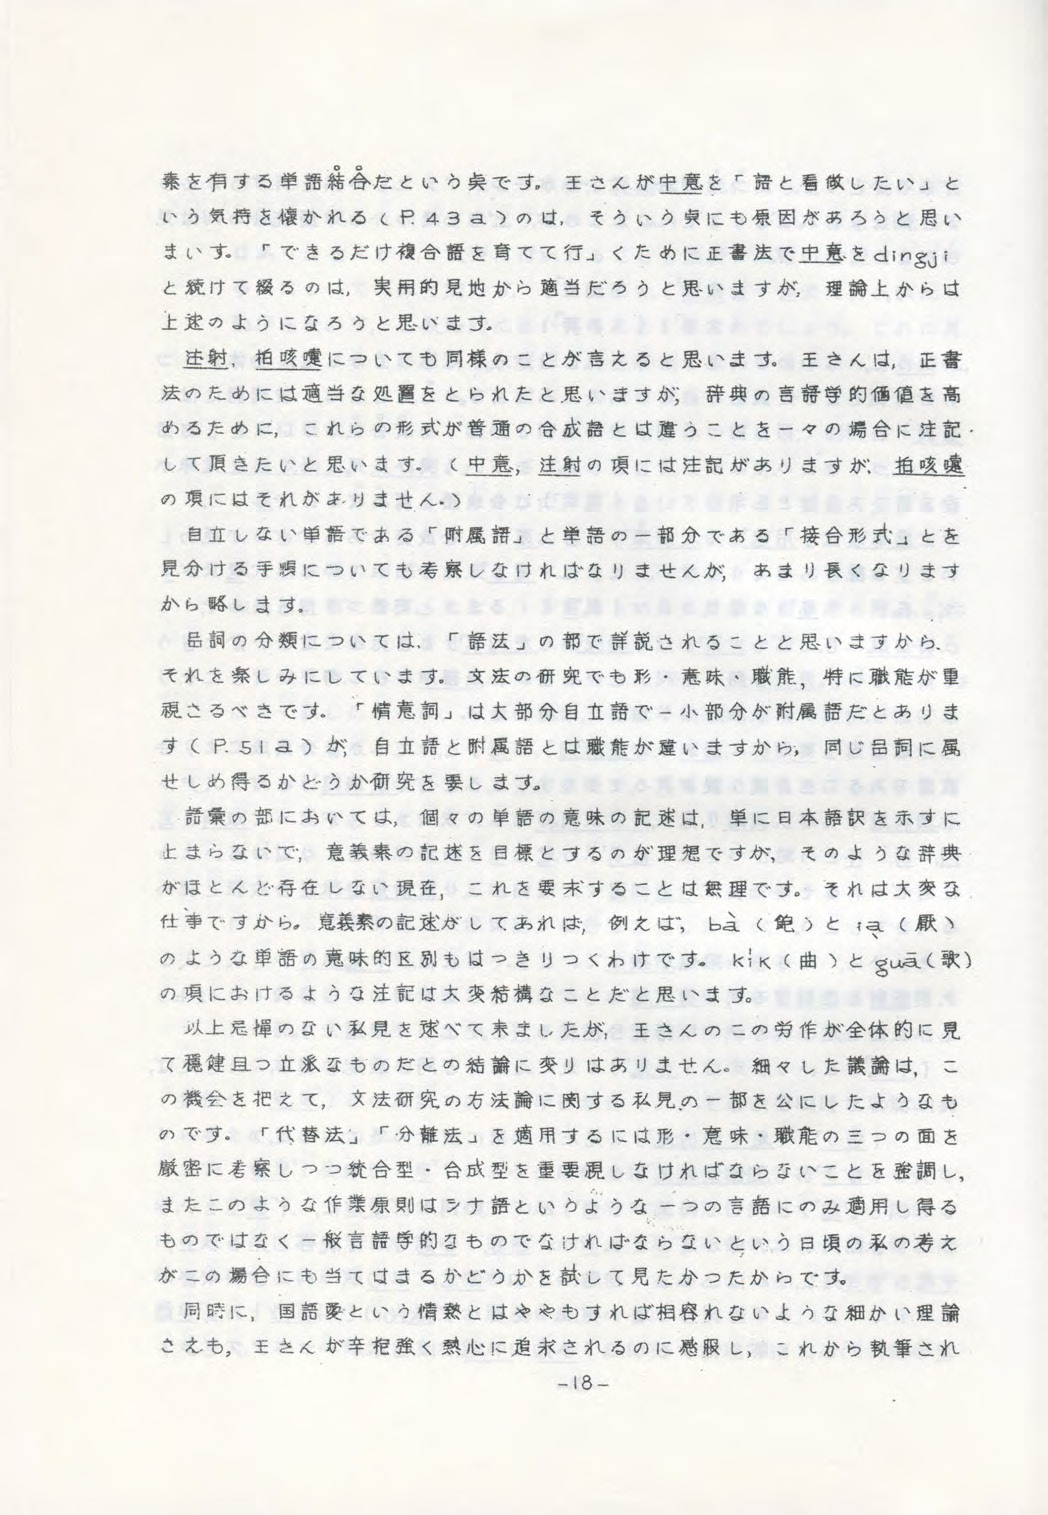 素を有する単語結合だという点です。王さんが中意を「語と看做したい」と
いう気持を懐かれる(P.43a)のは，そういう点にも原因があろうと思い
ます。「できるだけ複合語を育てて行」くために正書法で中意をdingji
と続けて綴るのは，実用的見地から適当だろうと思いますが，理論上からは
上述のようになろうと思います。
注射，拍咳嚏についても同様のことが言えると思います。王さんは，正書
法のためには適当な処置をとられたと思いますが，辞典の言語学的価値を高
めるために，これらの形式が普通の合成語とは違うことを一々の場合に注記
して頂きたいと思います。(中意，注射の項には注記がありますが，拍咳嚏
の項にはそれがありません。)
自立しない単語である「附属語」と単語の一部分である「接合形式」とを
見分ける手順についても考察しなければなりませんが，あまり長くなります
から略します。
品詞の分類については，「語法」の部で詳説されることと思いますから，
それを楽しみにしています。文法の研究でも形・意味・職能，特に職能が重
視さるべきです。「情意詞」は大部分自立語で一小部分が附属語だとありま
す(P.51a)が，自立語と附属語とは職能が違いますから，同じ品詞に属
せしめ得るかどうか研究を要します。
語彙の部においては，個々の単語の意味の記述は，単に日本語訳を示すに
止まらないで，意義素の記述を目標とするのが理想ですが，そのような辞典
がほとんど存在しない現在，これを要求することは無理です。それは大変な
仕事ですから。意義素の記述がしてあれば，例えば，bà(飽)と ià(厭)
のような単語の意味的区別もはっきりつくわけです。kik(曲)とguā(歌)
の項におけるような注記は大変結構なことだと思います。
以上忌憚のない私見を述べて来ましたが，王さんのこの労作が全体的に見
て穏健且つ立派なものだとの結論に変りはありません。細々した議論は，こ
の機会を把えて，文法研究の方法論に関する私見の一部を公にしたようなも
のです。「代替法」「分離法」を適用するには形・意味・職能の三つの面を
厳密に考察しつつ統合型・合成型を重要視しなければならないことを強調し，
またこのような作業原則はシナ語というような一つの言語にのみ適用し得る
ものではなく一般言語学的なものでなければならないという日頃の私の考え
がこの場合にも当てはまるかどうかを試して見たかったからです。
同時に，国語愛という情熱とはややもすれば相容れないような細かい理論
さえも，王さんが辛抱強く熱心に追求されるのに感服し，これから執筆され
-18-